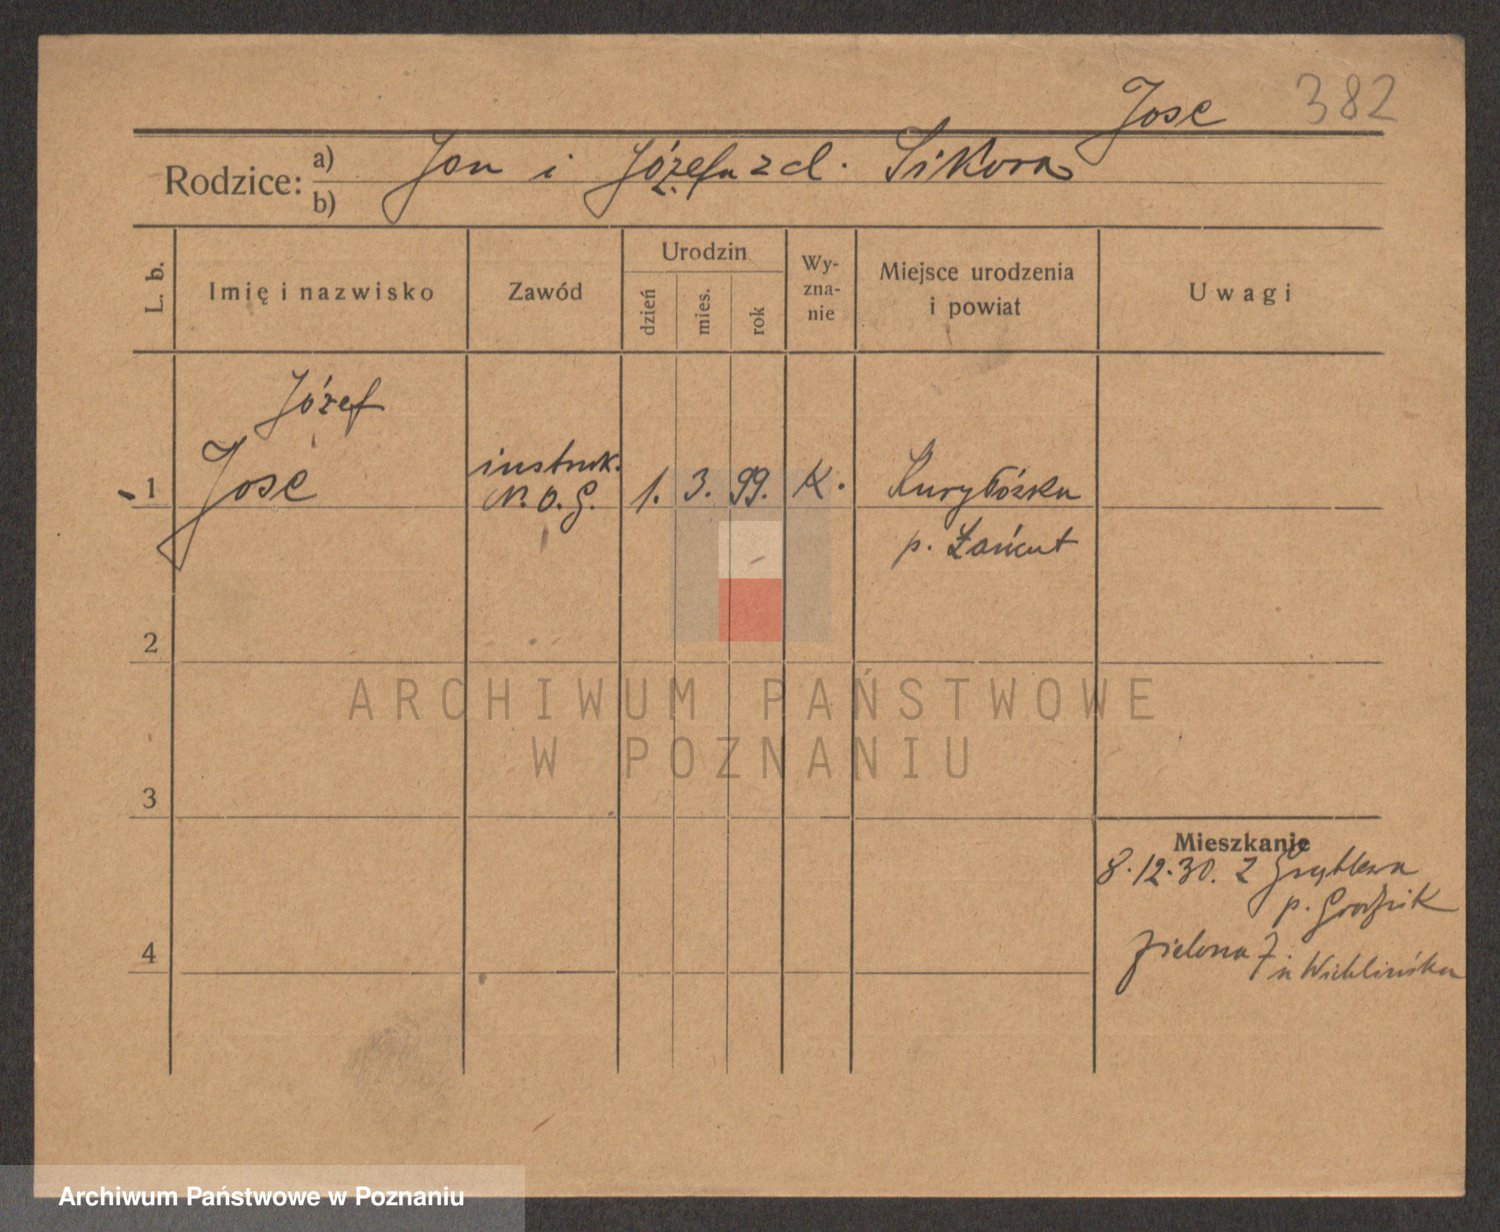 Jose 382
Rodzice: a) Jan i Józefa z d. Sikora
b)
L. b. Imię i nazwisko Zawód Urodzin Wy-zna-nie Miejsce urodzenia i powiat Uwagi
dzień mies. rok
Józef
1 Jose instruk. 1. 3. 99. K. Kuryłówka
N. O. G. p. Łańcut
2
3
Mieszkanie
8.12.30. z
p. Grodzisk
4 Zielona 7
ARCHIWUM PAŃSTWOWE
W POZNANIU
Archiwum Państwowe w Poznaniu